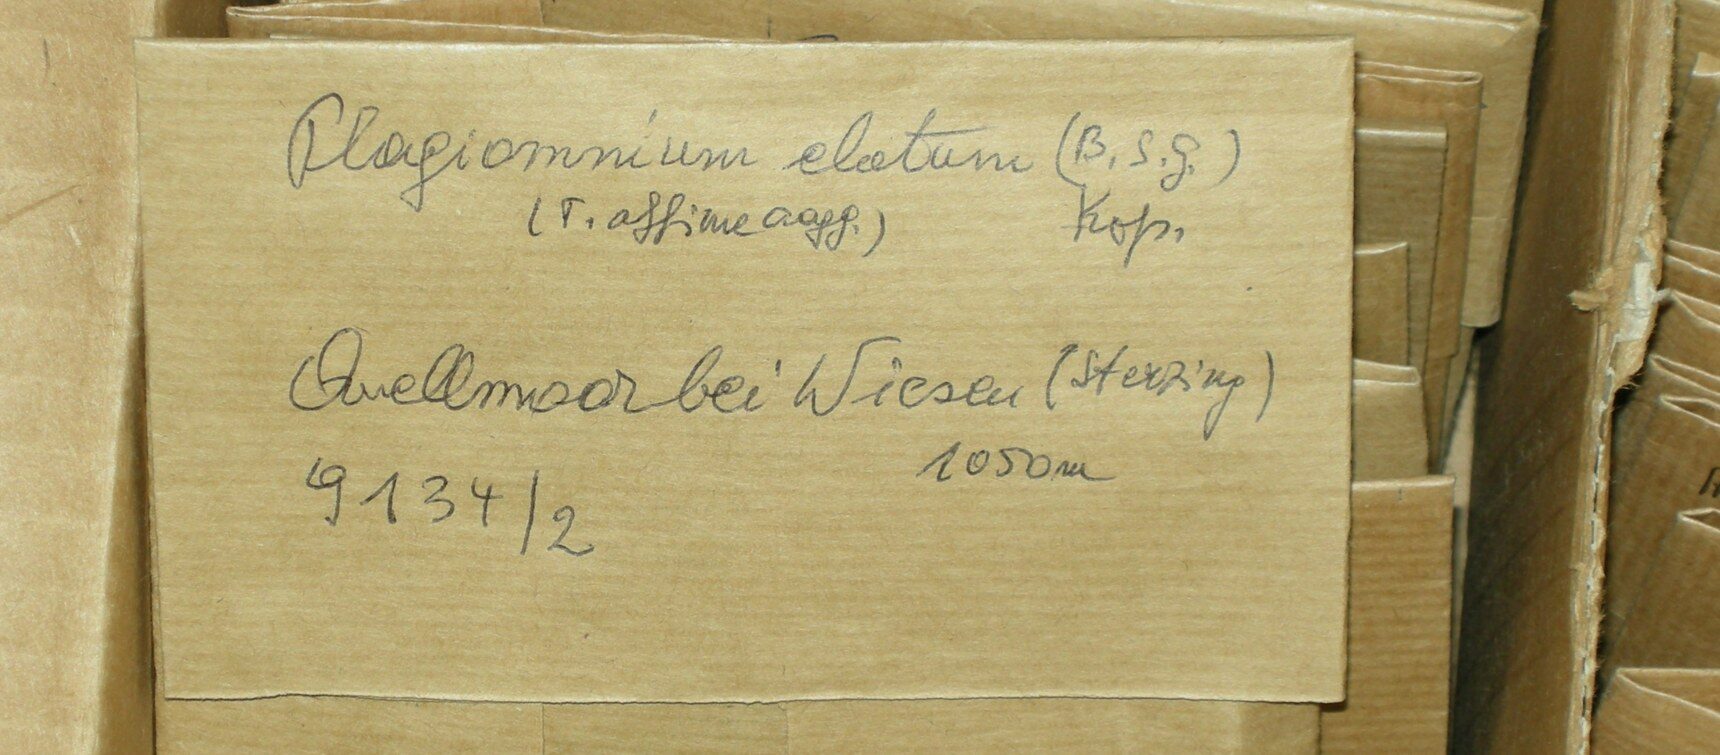 Plagiomnium elatum (B.S.g.)
(P. affine aagg.) Kop.
Quellmoor bei Wiesen (Sterzing)
1050m
9134/2